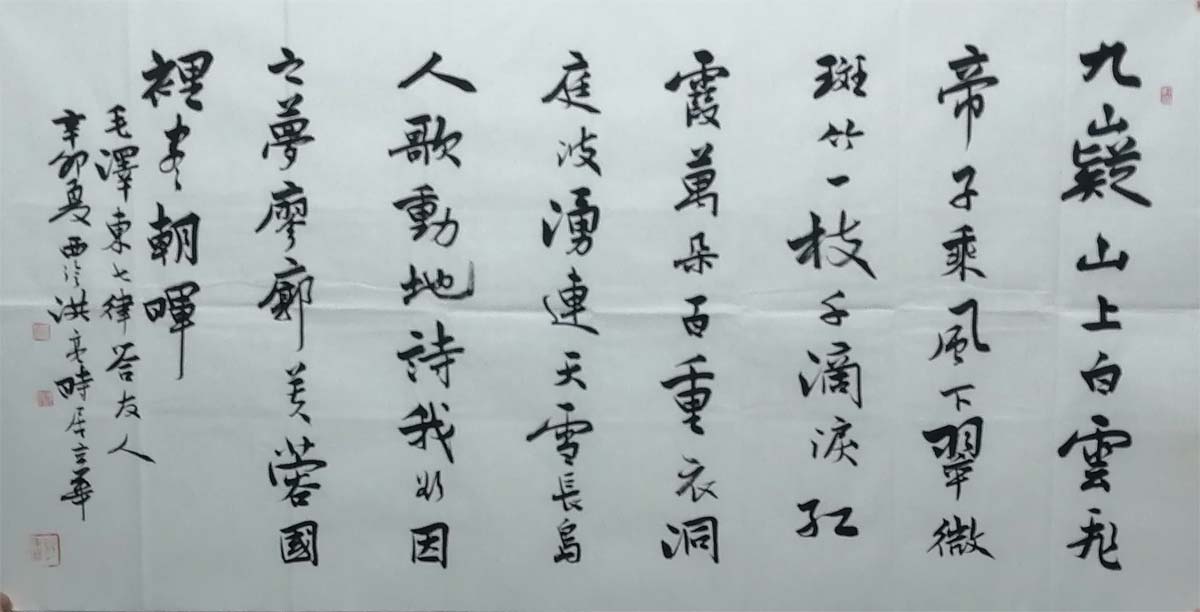 九嶷山上白雲飛
帝子乘風下翠微
斑竹一枝千滴淚紅
霞萬朵百重衣洞
庭波湧連天雪長島
人歌動地詩我欲因
之夢廖廓芙蓉國
裡盡朝暉
毛澤東七律答友人
辛卯夏西泠洪亮時居京華